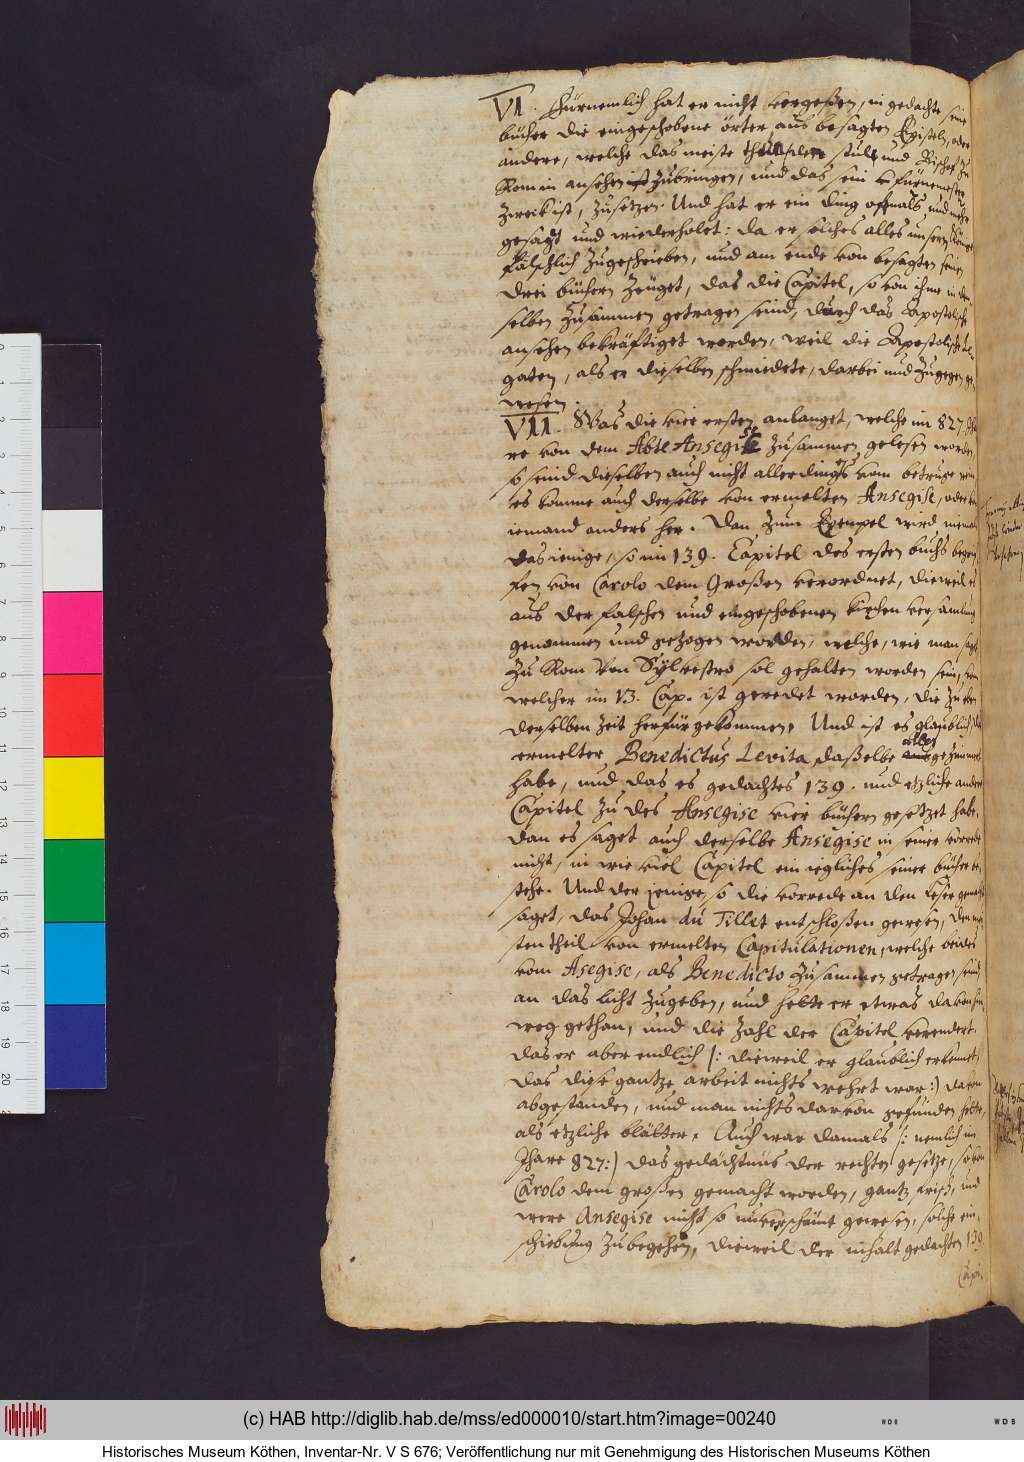 VI. Fürnemlich hat er nicht vergeßen, in gedachte seine
bücher die eingeschobene örter aus besagten Episteln, oder
andere, welche das meiste thun, den stule und Bischof zu
Rom in ansehen zubringen, und das sein fürnemester
zweck ist, zusetzen. Und hat er ein ding oftmals und mehr
gesagt und wiederholet: da er solches alles unsern Königen
fälschlich zugeschrieben, und am ende von besagten seinen
drei büchern zeuget, das die Capitel, so von ihme in den-
selben zusammen getragen seind, durch das Apostolische
ansehen bekräftiget worden, weil die Apostolische Le-
gaten, als er dieselben schmiedete, darbei und zugegen ge-
wesen.
VII. Was die vier ersten anlanget, welche im 827. Jha-
re von dem Abte Ansegise zusammen gelesen worden
so seind dieselben auch nicht allerdings vom betruge rein
es komme auch derselbe von ermelten Ansegise, oder von
iemand anders her. Dan zum Exempel wird niemals
das ienige, so im 139. Capitel des ersten buchs begrif-
fen von Carolo dem Großen verordnet, dieweil es
aus der falschen und eingeschobenen kirchen versamlung
genommen und gezogen worden, welche, wie man saget
zu Rom von Sylvestro sol gehalten worden sein, von
welcher im 13. Cap. ist geredet worden, die zu eben
derselben zeit herfür gekommen. Und ist es glaublich, das
ermelter Benedictus Levita daßelbe alles gezimmert
habe, und das es gedachtes 139. und etzliche andere
Capitel zu des Ansegise vier büchern gesetzet habe.
dan es saget auch derselbe Ansegise in seiner vorrede
nicht, in wie viel Capitel ein iegliches seiner bücher be-
stehe. Und der ienige, so die vorrede an den Leser gemacht
saget, das Johan du Tillet entschloßen gewesen, den mei-
sten theil von ermelten Capitulationen, welche beides
vom Asegise, als Benedicto zusammen getragen seind
an das licht zugeben, und hette er etwas davon hin-
weg gethan, und die zahl der Capitel verendert.
das er aber endlich /: dieweil er glaublich erkennet,
das diese gantze arbeit nichts wehrt war :/ davon
abgestanden, und man nichts darvon gefunden hette,
als etzliche blätter. Auch war damals /: nemlich im
Jhare 827:/ das gedächtnüs der rechten gesetze, so von
Carolo dem großen gemacht worden, gantz frisch, und
were Ansegise nicht so unverschämt gewesen, solche ein-
schiebung zubegehen, dieweil der inhalt gedachten 139.
Capi-
(c) HAB http://diglib.hab.de/mss/ed000010/start.htm?image=00240
Historisches Museum Köthen, Inventar-Nr. V S 676; Veröffentlichung nur mit Genehmigung des Historischen Museums Köthen